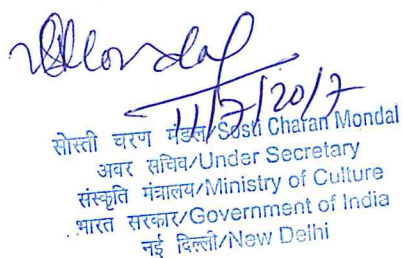 SCMondal
11/7/2017
सोस्ती चरण मंडल/Sosti Charan Mondal
अवर सचिव/Under Secretary
संस्कृति मंत्रालय/Ministry of Culture
भारत सरकार/Government of India
नई दिल्ली/New Delhi